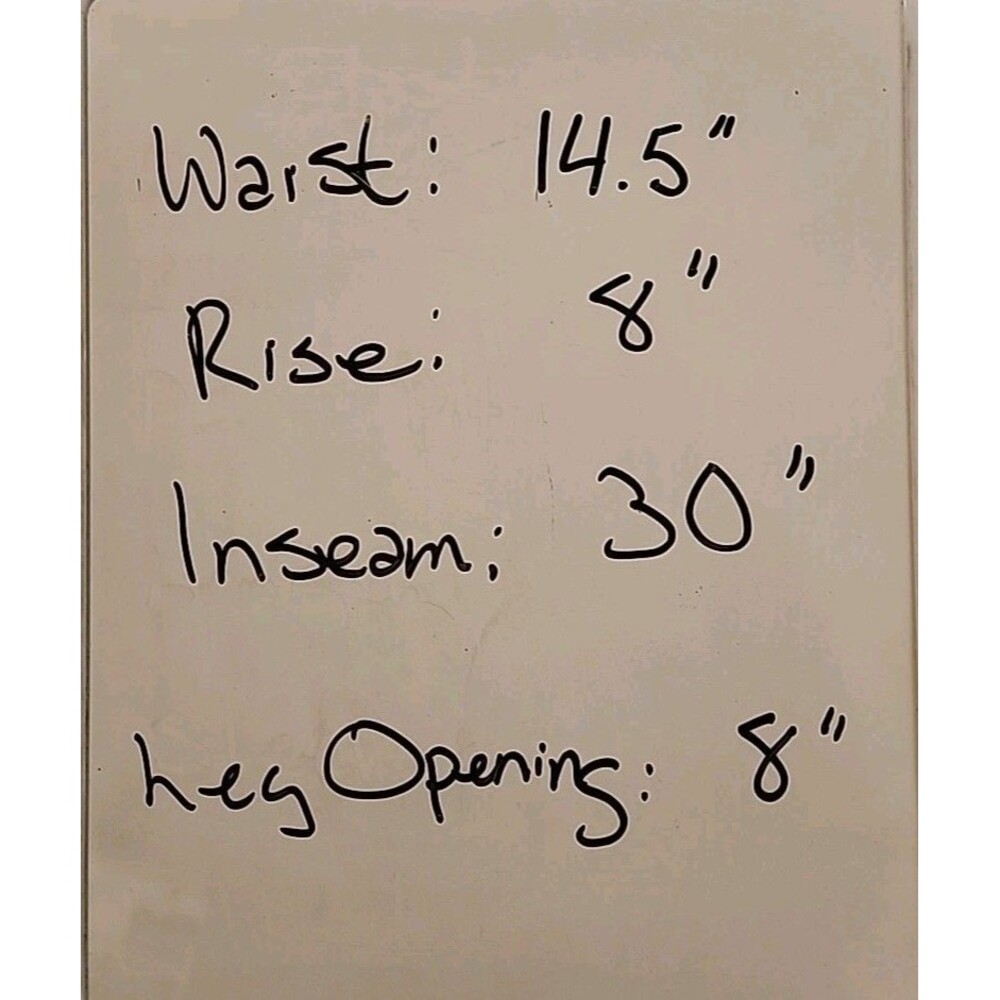 Waist: 14.5"
Rise: 8"
Inseam: 30"
Leg Opening: 8"